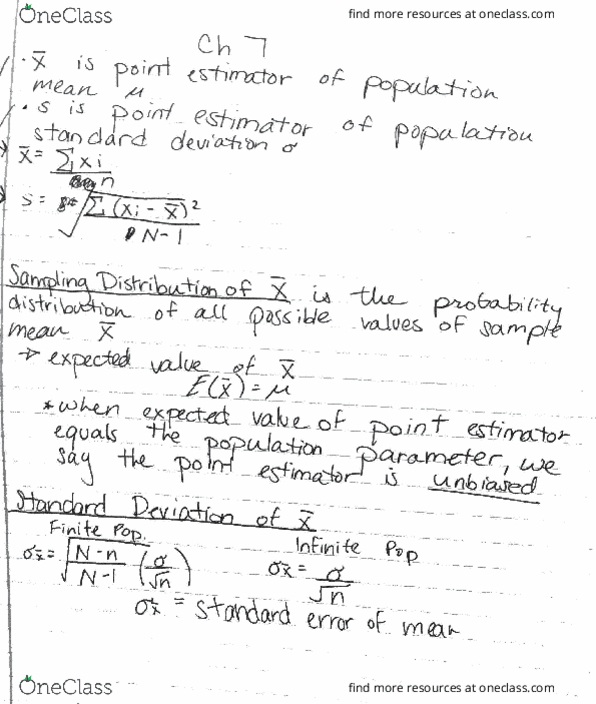 OneClass
find more resources at oneclass.com
Ch 7
· x̄ is point estimator of population
mean μ
· s is point estimator of population
standard deviation σ
x̄ = Σxi
n
s = √Σ(xi - x̄)²
N-1
Sampling Distribution of x̄ is the probability
distribution of all possible values of sample
mean x̄
→ expected value of x̄
E(x̄) = μ
*when expected value of point estimator
equals the population parameter, we
say the point estimator is unbiased
Standard Deviation of x̄
Finite Pop.
Infinite Pop
σx̄ = √N-n/N-1 (σ/√n)
σx̄ = σ/√n
σx̄ = standard error of mean
OneClass
find more resources at oneclass.com